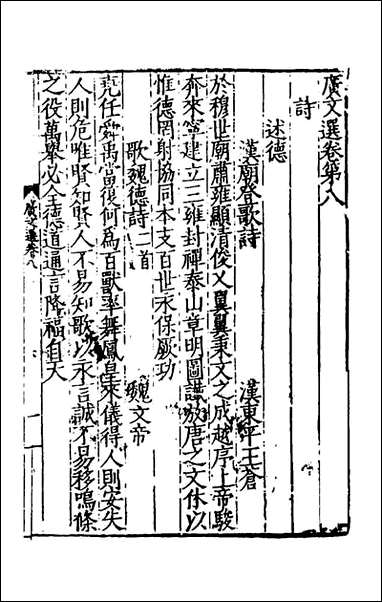 廣文選卷第八
詩
述德
漢廟登歌詩
漢東平王蒼
於穆世廟肅雍顯清俊乂翼翼秉文之成越序上帝駿
奔來寧建立三雍封禪泰山章明圖讖放唐之文休以
惟德罔射協同本支百世永保厥功
歌魏德詩二首
魏文帝
堯任舜禹當復何為百獸率舞鳳皇來儀得人則安失
人則危唯賢知賢人不易知歌以永言誠不易移鳴條
之役萬舉必全德道通言降福自天
廣文選卷八
一